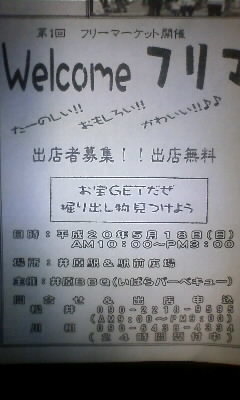 第1回 フリーマーケット開催
Welcome フリマ
たーのしい!! おもしろい!! かわいい!!♪♪
出店者募集!!出店無料
お宝GETだぜ
掘り出し物見つけよう
日時:平成20年5月18日(日)
AM10:00~PM3:00
場所:井原駅&駅前広場
主催:井原BBQ(いばらバーベキュー)
問合せ&出店申込
松井 090-2218-9595
(AM9:00~PM9:00)
川相 090-6438-4334
(24時間受付中)